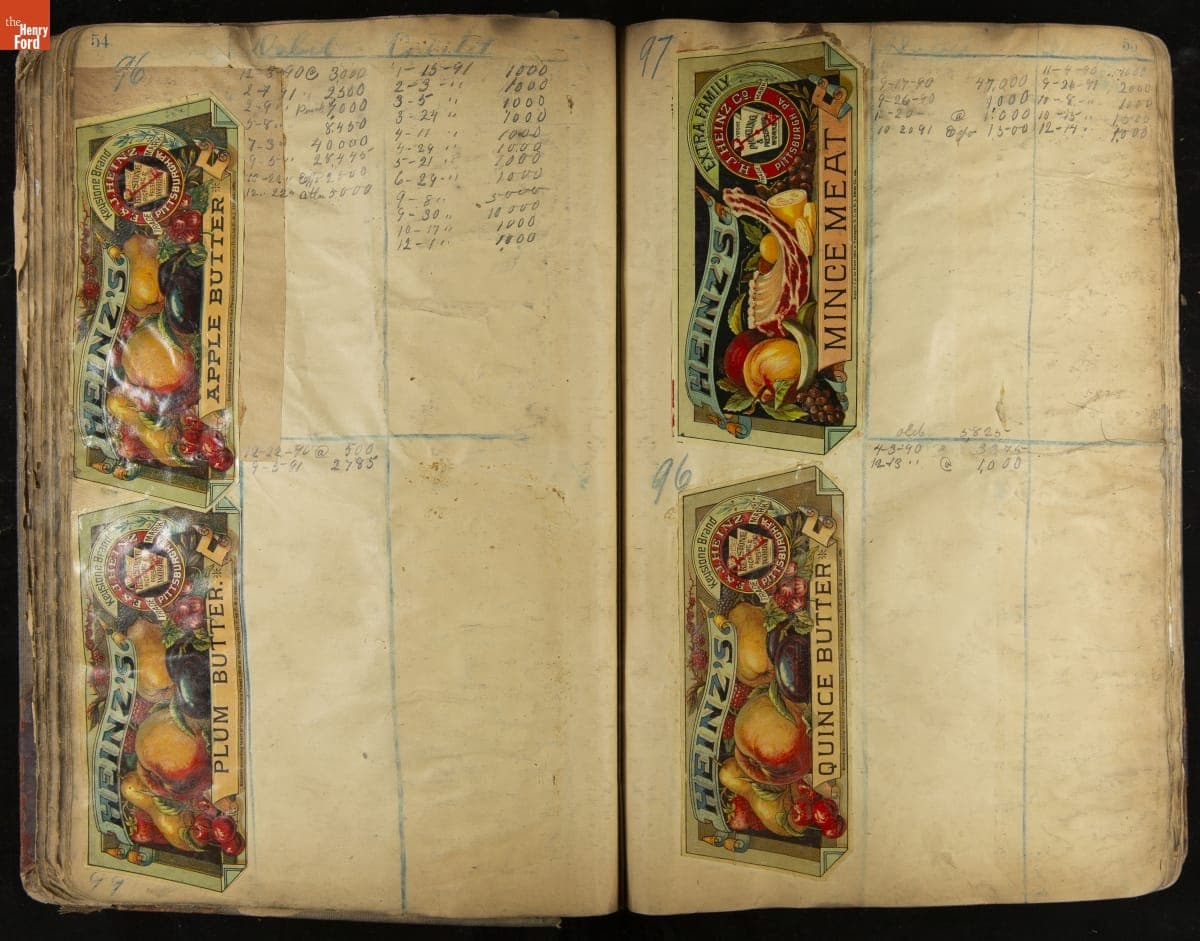 the
Henry
Ford
54
96
12-3-90 @ 3000
2500
9000
5-8 " 8,450
7-3 40000
9-5 " 28,445
2500
5000
1-15-91 1000
2-3 " 1000
3-5 " 1000
3-24 " 1000
4-11 " 1000
4-24 " 1000
5-21 " 1000
6-29 " 1000
9-8 " 5000
9-30 " 10000
10-17 " 1000
12-1 " 1000
Keystone Brand
F. & J. HEINZ
PITTSBURGH PA
TRADE MARK
HEINZ'S
APPLE BUTTER
12-22-90 @ 500
9-5-91 2785
Keystone Brand
F. & J. HEINZ
PITTSBURGH PA
TRADE MARK
HEINZ'S
PLUM BUTTER.
99
97
EXTRA FAMILY
H.J. HEINZ CO.
PITTSBURGH PA
TRADE MARK
HEINZ'S
MINCE MEAT
9-17-90 47,000
9-26-90 1000
12-20 @ 1,000
10-20 91 1500
11-4-90 1000
9-26-91 2000
10-8- " 1000
10-15- " 1000
12-14 " 1,000
old 5825
4-3-90 3375
12-13 " @ 1,000
96
Keystone Brand
F. & J. HEINZ
PITTSBURGH PA
TRADE MARK
HEINZ'S
QUINCE BUTTER